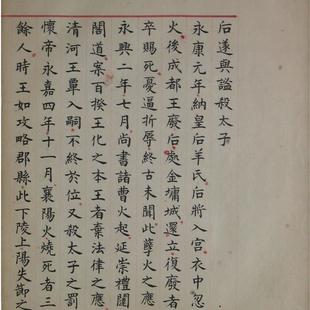 后遂與謐殺太子
永康元年納皇后羊氏后將入宮衣中忽
火後成都王廢后處金墉城還立復廢者
卒賜死憂逼折辱終古未聞此孽火之應
永興二年七月尚書諸曹火起延崇禮闥
閣道案百揆王化之本王者棄法律之應
清河王覃入嗣不終於位又殺太子之罰
懷帝永嘉四年十一月襄陽火燒死者三
餘人時王如攻略郡縣此下陵上陽失節之